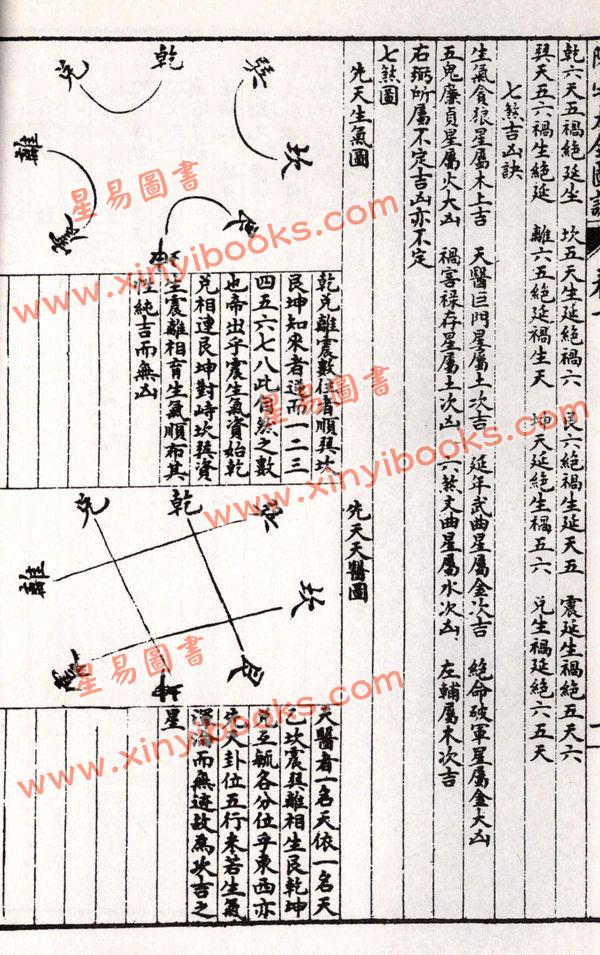 陽宅大全圖說 卷一
乾六天五禍絕延生 坎五天生延絕禍六 艮六絕禍生延天五 震延生禍絕五天六
巽天五六禍生絕延 離六五絕延禍生天 坤天延絕生禍五六 兌生禍延絕六五天
七煞吉凶訣
生氣貪狼星屬木上吉 天醫巨門星屬土次吉 延年武曲星屬金次吉 絕命破軍星屬金大凶
五鬼廉貞星屬火大凶 禍害祿存星屬土次凶 六煞文曲星屬水次凶 左輔屬木次吉
右弼所屬不定吉凶亦不定
七煞圖
先天生氣圖
巽
乾
兌
坎
離
乾兌離震數往者順巽坎
艮坤知來者逆而一二三
四五六七八此自然之數
也帝出乎震生氣資始乾
兌相連艮坤對峙坎巽資
生震離相育生氣順布其
性純吉而無凶
先天天醫圖
乾
兌
坎
離
艮
天醫者一名天依一名天
乙坎震巽離相生艮乾坤
兌互毓各分位乎東西亦
先天卦位五行來若生氣
深清而無迹故為次吉之
星
星易圖書
www.xinyibooks.com
星易圖書
www.xinyibooks.com
星易圖書
www.xinyibooks.com
星易圖書
www.xinyibooks.com